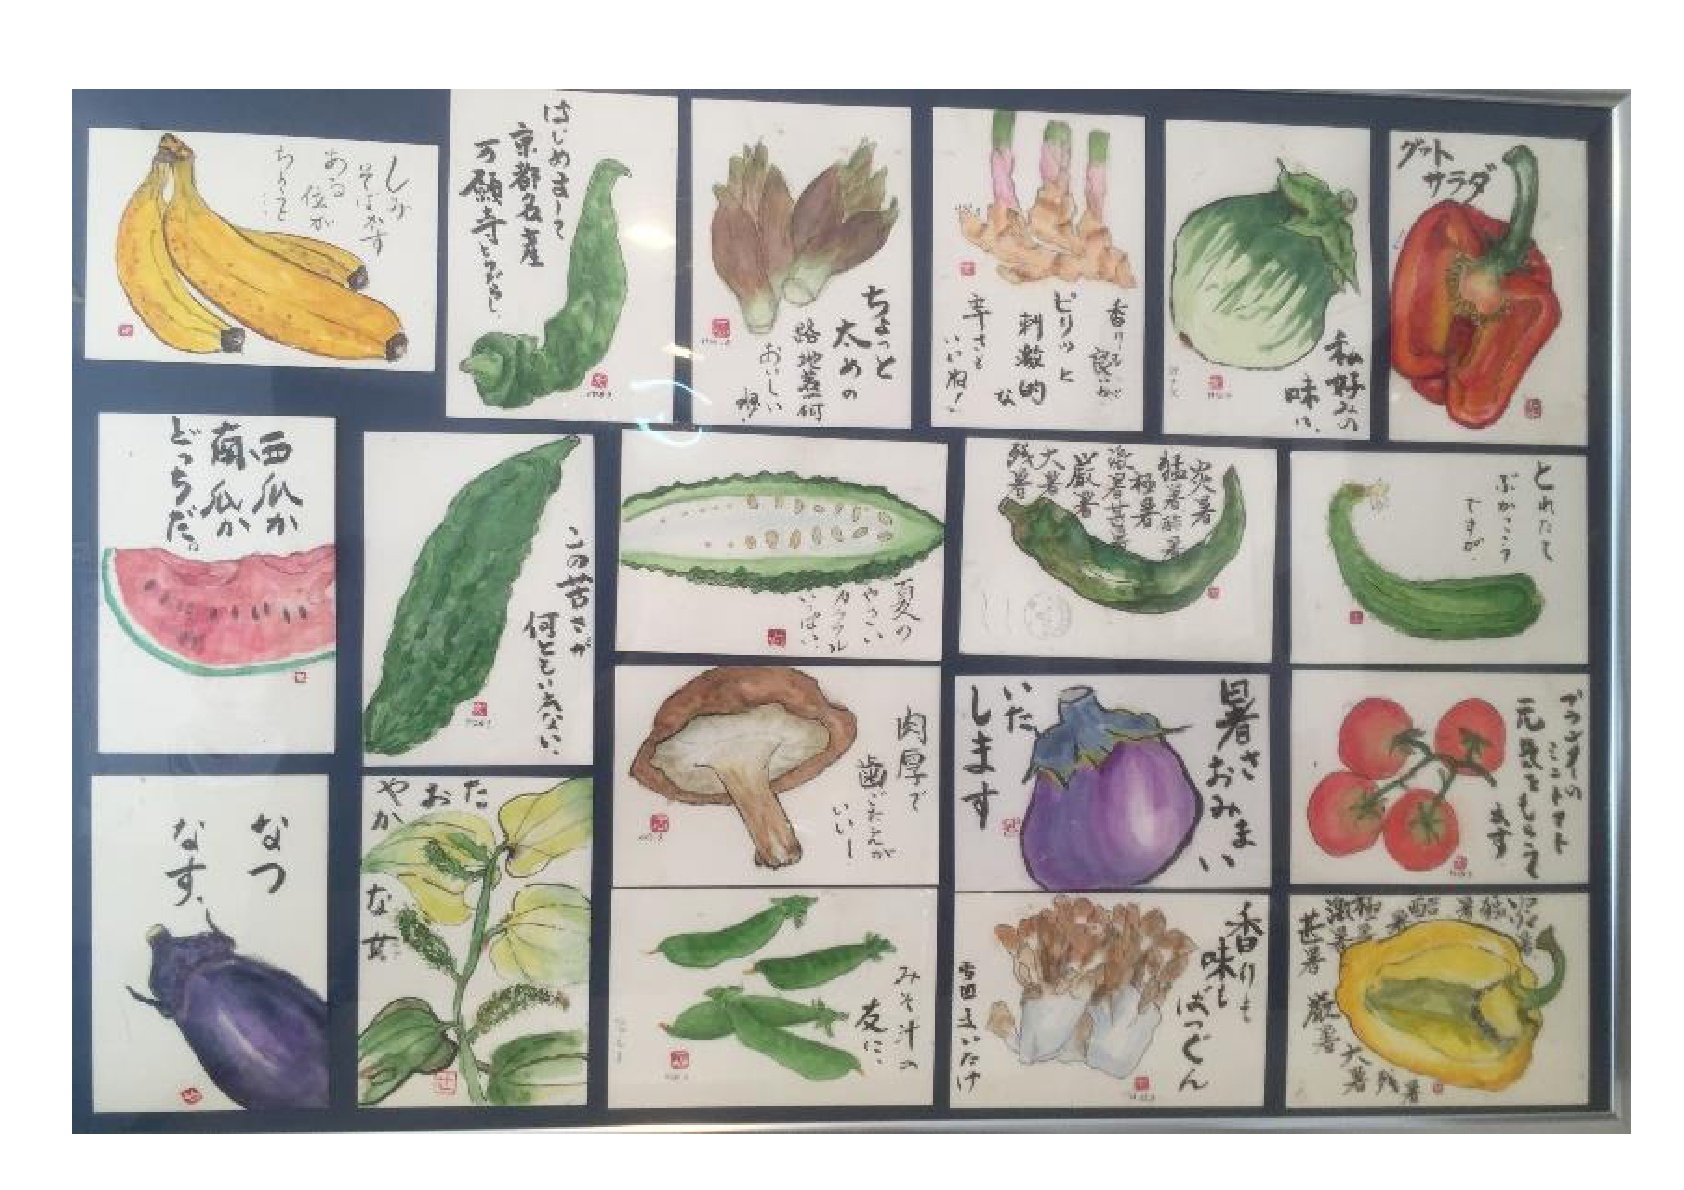 しみ
そばかす
ある
位が
ちょうど
はじめまして
京都名産
万願寺とうがらし
ちょっと
太めの
路地茗荷
おいしい
香りも良いが
ピリッと
刺激的
な
辛さも
いいね!
私好みの
味に、
グット
サラダ
西瓜か
南瓜か
どっちだ。
この苦さが
何ともいえない、
夏の
やさい
いっぱい、
炎暑
猛暑酷暑
極暑
激暑甚暑
厳暑
大暑
残暑
とれたて
ぶかっこう
ですが、
肉厚で
歯ごたえが
いいー
暑さ
おみまい
いた
します
プランターの
ミニトマト
元気をもらって
ます
なつ
なす、
た
お
やか
な
みそ汁の
友に、
香りも
味も
ばつぐん
雪国まいたけ
猛暑
酷暑
極暑
激暑
甚暑
厳暑
大暑
残暑